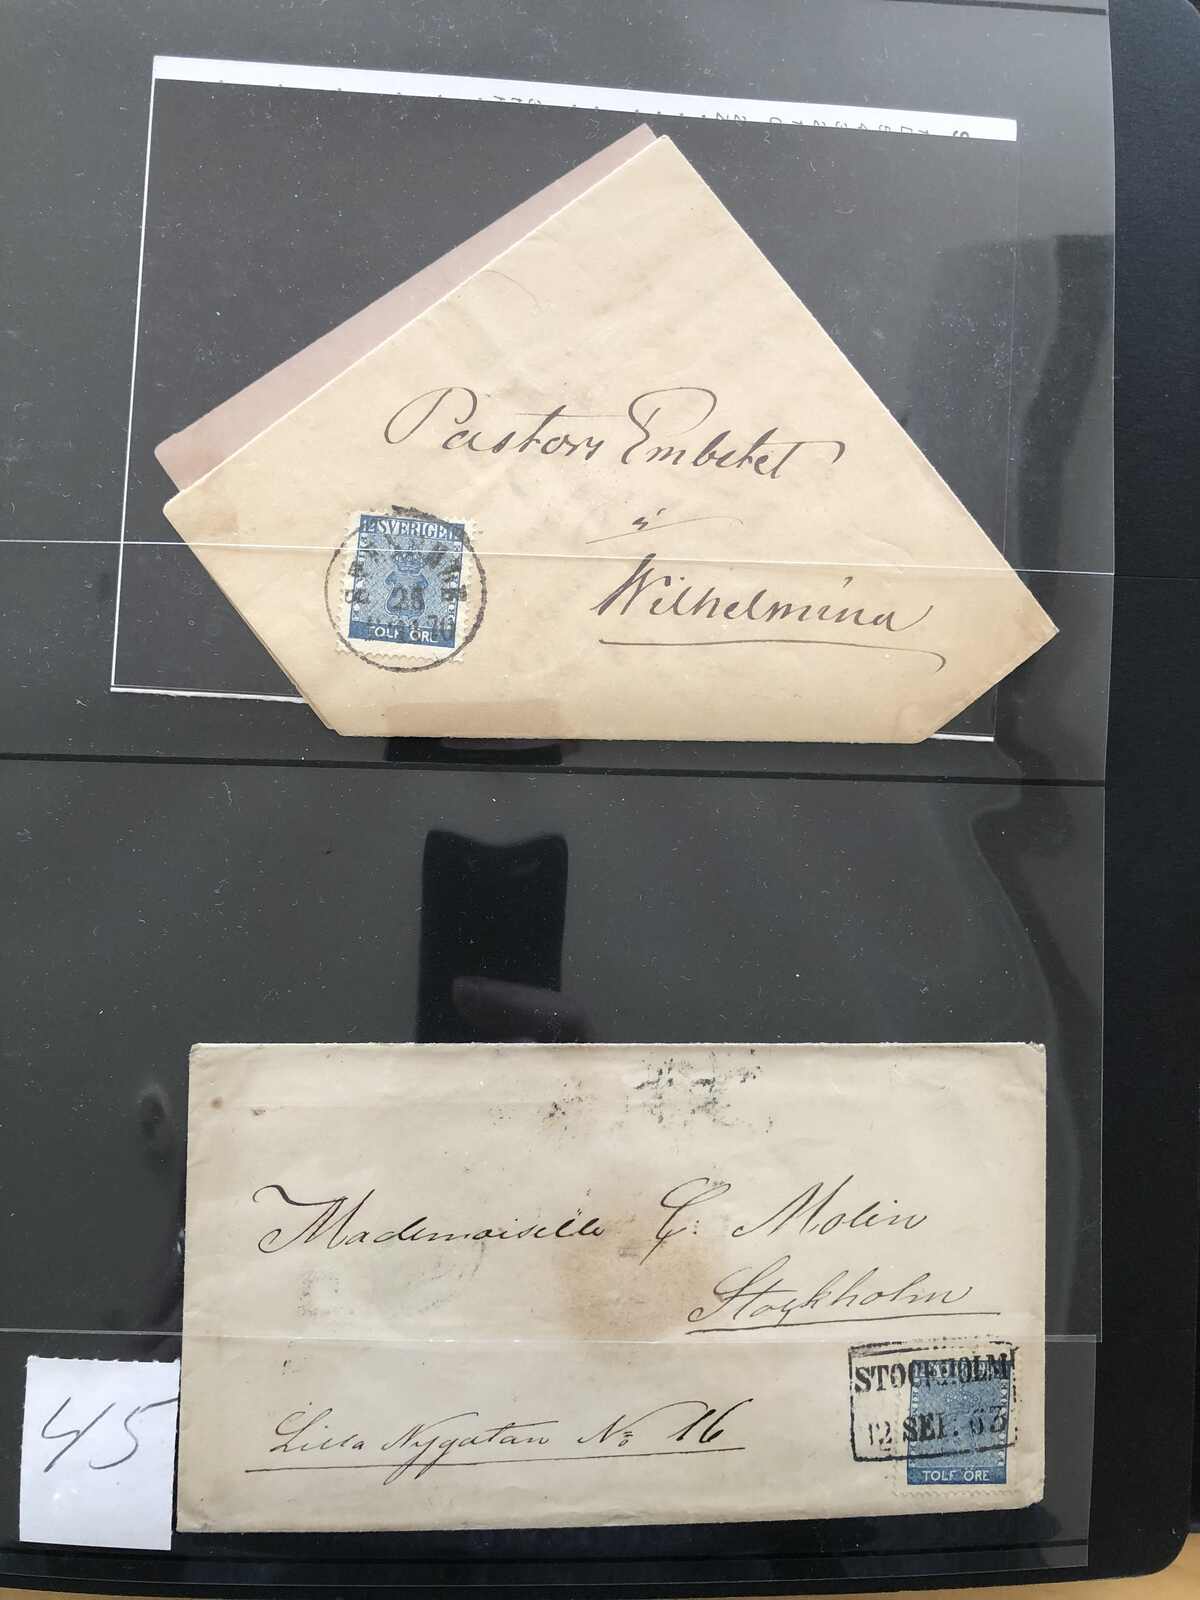 Pastors Embetet
i
Wilhelmina
12 SVERIGE 12
25
TOLF ÖRE
Mademoiselle C. Molin
Stockholm
STOCKHOLM
12 SEP. 63
TOLF ÖRE
Lilla Nygatan No 16
45